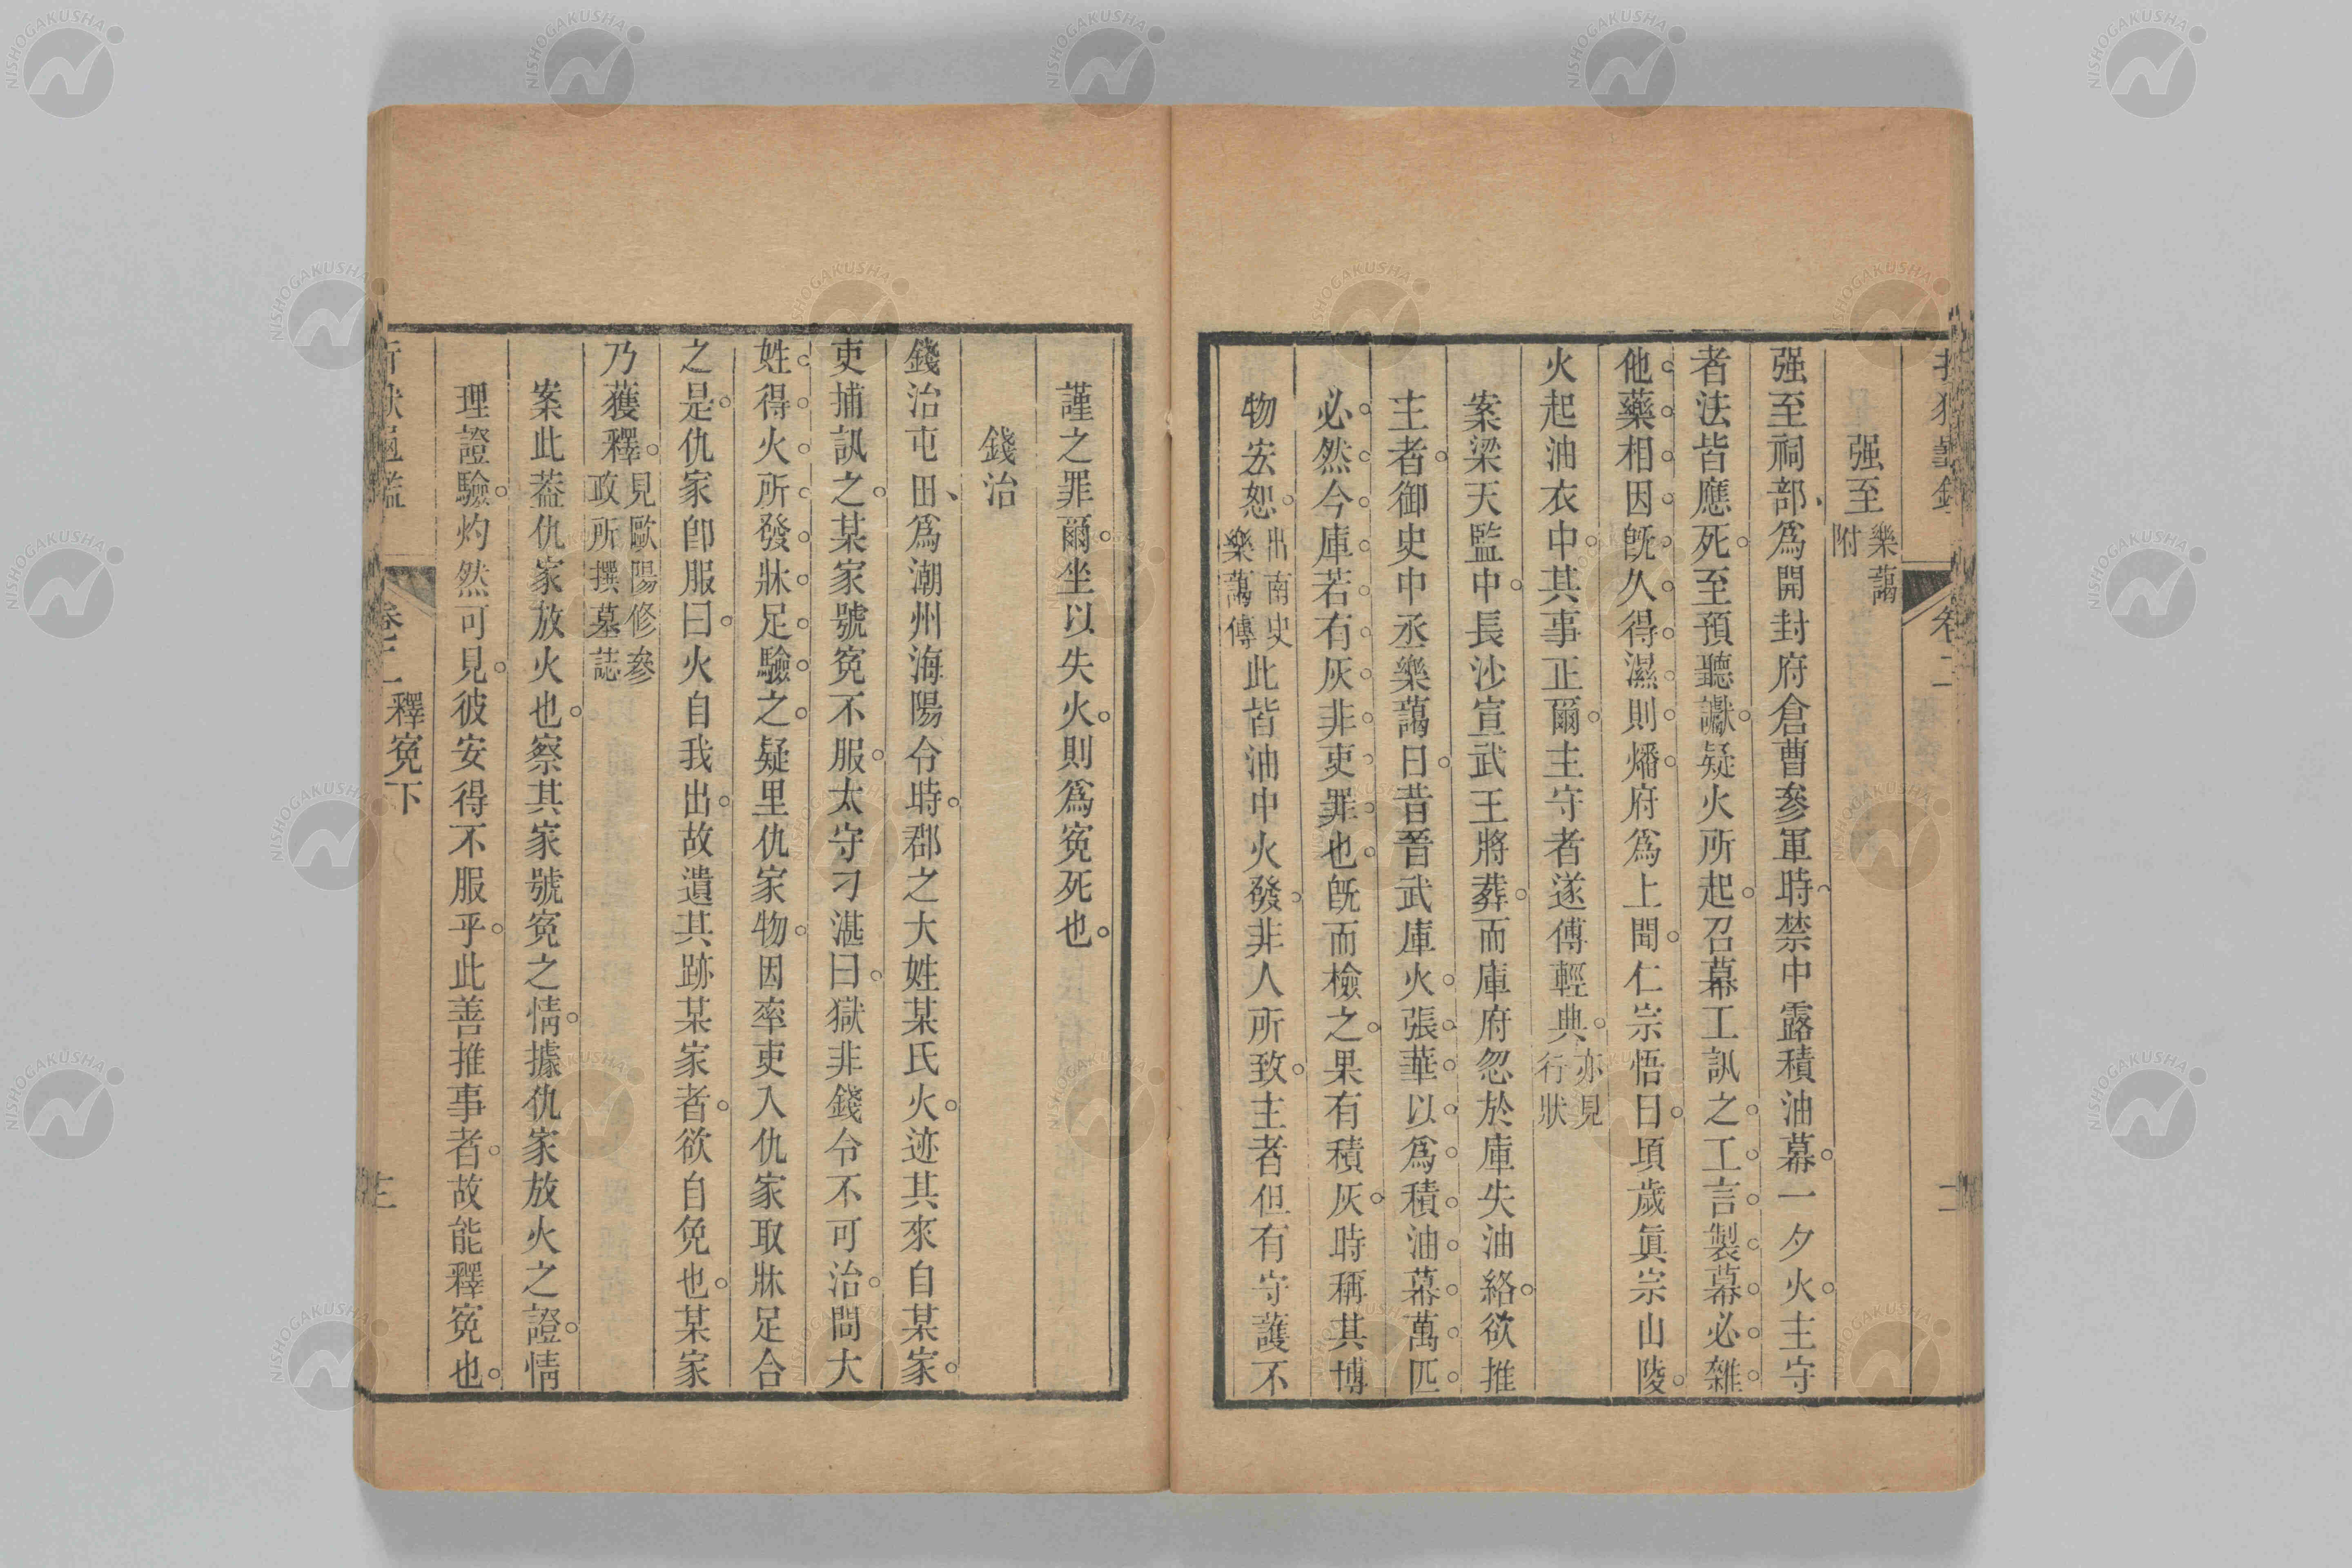 强至樂藹附
强至祠部爲開封府倉曹參軍時禁中露積油幕一夕火主守
者法皆應死至預聽讞疑火所起召幕工訊之工言製幕必雜
他藥相因旣久得濕則燔府爲上聞仁宗悟曰頃歲眞宗山陵
火起油衣中其事正爾主守者遂傅輕典亦見行狀
案梁天監中長沙宣武王將葬而庫府忽於庫失油絡欲推
主者御史中丞樂藹曰昔晉武庫火張華以爲積油幕萬匹
必然今庫若有灰非吏罪也旣而檢之果有積灰時稱其博
物宏恕出南史樂藹傳此皆油中火發非人所致主者但有守護不
謹之罪爾坐以失火則爲寃死也
錢治
錢治屯田爲潮州海陽令時郡之大姓某氏火迹其來自某家
吏捕訊之某家號寃不服太守刁湛曰獄非錢令不可治問大
姓得火所發牀足驗之疑里仇家物因率吏入仇家取牀足合
之是仇家卽服曰火自我出故遺其跡某家者欲自免也某家
乃獲釋見歐陽修參政所撰墓誌
案此葢仇家放火也察其家號寃之情據仇家放火之證情
理證驗灼然可見彼安得不服乎此善推事者故能釋寃也
卷二 釋寃下
NISHOGAKUSHA